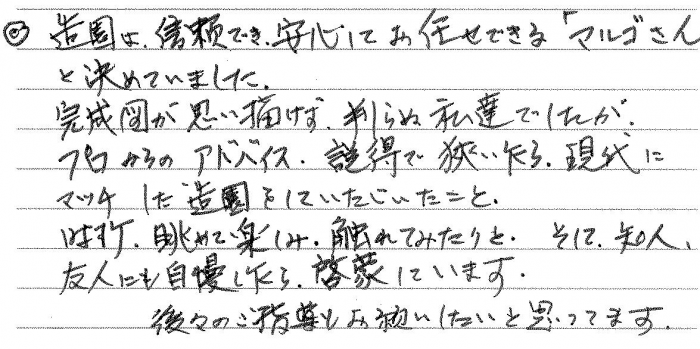 ◎ 造園は、信頼でき、安心してお任せできる「マルゴさん
と決めていました。
完成図が思い描けず、判らぬ私達でしたが、
プロからのアドバイス、説得で狭いながら、現代に
マッチした造園をしていただいたこと、
眺めて楽しみ、触れてみたりと、そして、知人、
友人にも自慢しながら、啓蒙しています。
後々のご指導もお願いしたいと思ってます。